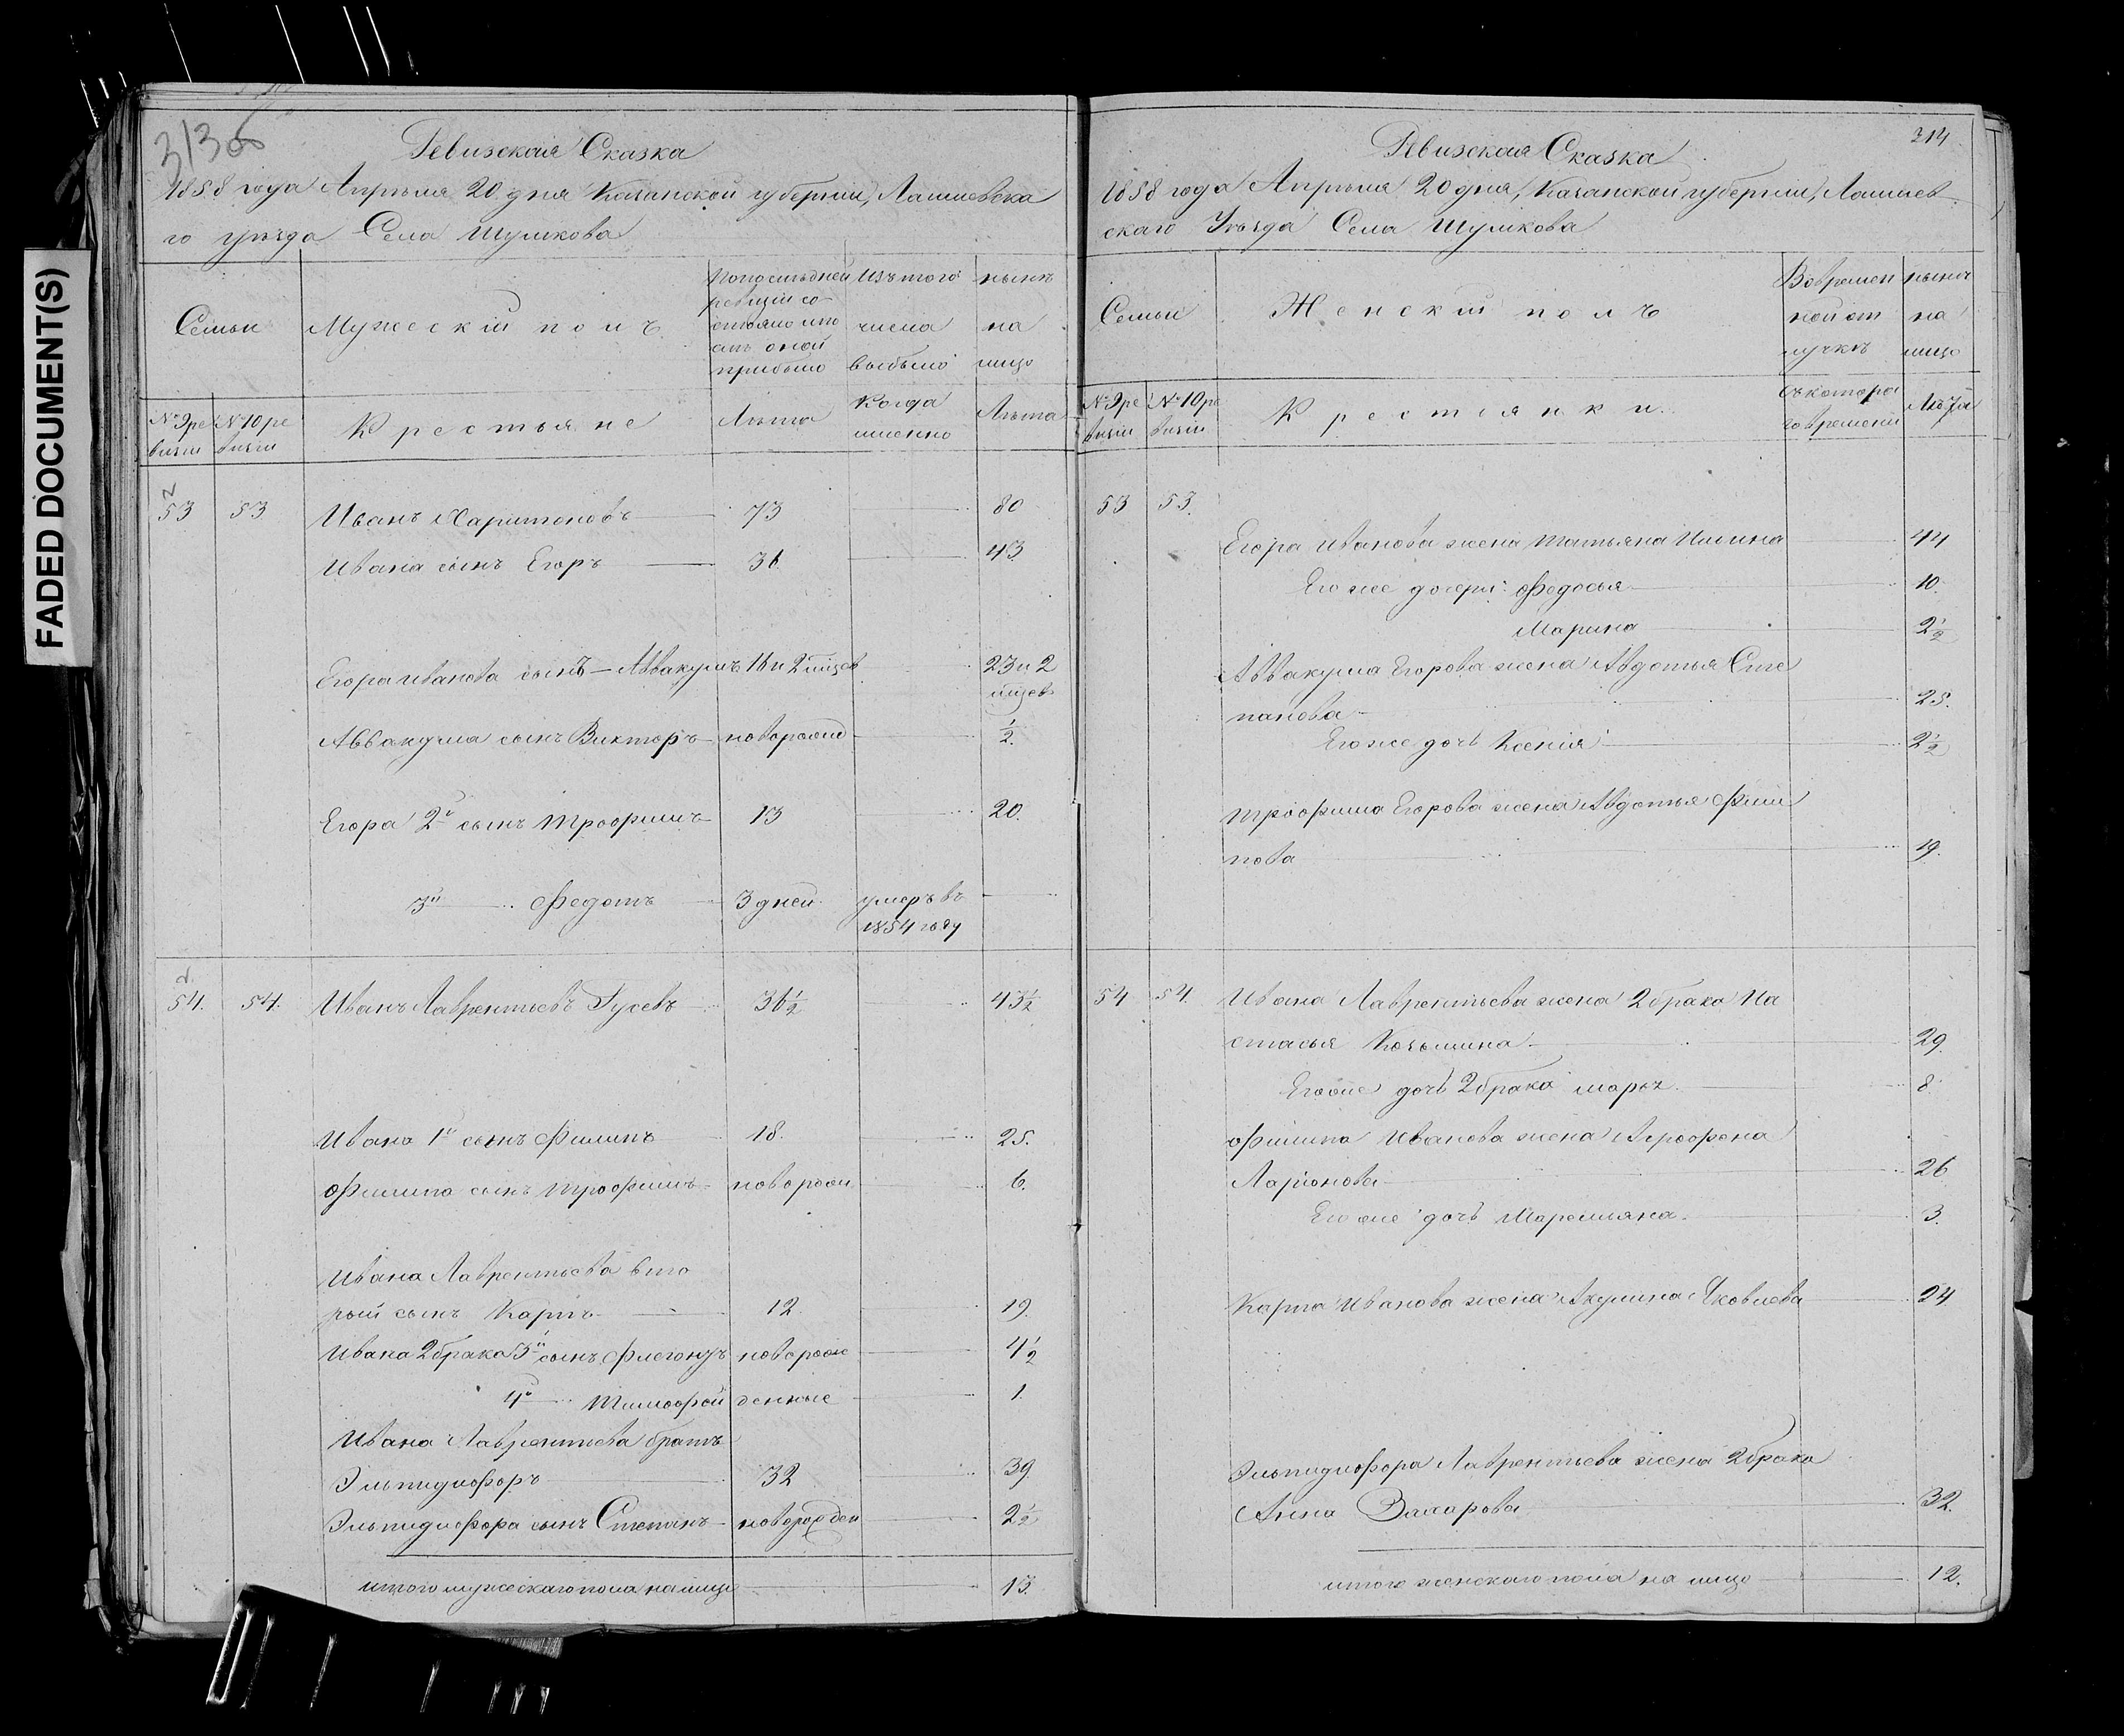 FADED DOCUMENT(S)
313об
Ревизская Сказка
1858 года Апрѣля 20 дня Казанской губерніи, Лаишевска
го уѣзда Села Шуликова
Семьи
Мужескій полъ
По последней
ревизіи со-
стояло или
послѣ оной
прибыло
Изъ того
числа
выбыло
нынѣ
на
лицо
№ 9 ре
визіи
№ 10 ре
визіи
Крестьяне
Лѣта
Когда
именно
Лѣта
53 53 Иванъ Харитоновъ 73 80
Ивана сынъ Егоръ 36 43
Егора Иванова сынъ Аввакумъ 16 и 2 мѣсяц 23 и 2
мѣсяц
Аввакума сынъ Викторъ новорожд ½
Егора 2й сынъ Трофимъ 13 20.
3й Федотъ 3 дней умеръ въ
1854 году
54. 54. Иванъ Лаврентьевъ Гусевъ 36½ 43½
Ивана 1й сынъ Филипъ 18. 25.
Филипа сынъ Трофимъ новорож 6.
Ивана Лаврентьева вто
рый сынъ Карпъ 12. 19.
Ивана 2 брака 3й сынъ Флегонтъ новорож 4½
4й Тимофей денные 1.
Ивана Лаврентьева братъ
Эльпидифоръ 32 39
Эльпидифора сынъ Степанъ новорожден 2½
итого мужескаго пола на лицо 13.
314
Ревизская Сказка
1858 года Апрѣля 20 дня, Казанской губерніи, Лаишев
скаго Уѣзда Села Шуликова
Семьи
Женскій полъ
Во времен
ной от
лучкѣ
нынѣ
на
лицо
№ 9 ре
визіи
№ 10 ре
визіи
Крестьянки.
Съ котора
го времени
Лѣта
53 53.
Егора Иванова жена Татьяна Ильина 44
Его же дочери: Федосья 10.
Марина 2½
Аввакума Егорова жена Авдотья Сте
панова 25.
Его же дочь Ксенія 2½
Трофима Егорова жена Авдотья Фили
пова 19.
54 54. Ивана Лаврентьева жена 2 брака На
стасья Козьмина 29.
Его же дочь 2 брака Марья 8.
Филипа Иванова жена Агрофена
Ларіонова 26
Его же дочь Маремьяна. 3.
Карпа Иванова жена Акулина Яковлева 24
Эльпидифора Лаврентьева жена 2 брака
Анна Захарова 32.
итого женскаго пола на лицо 12.